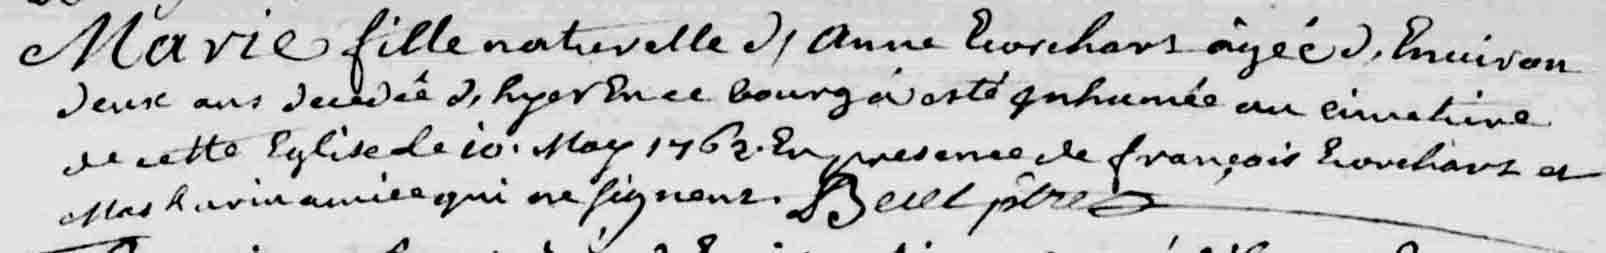 Marie fille naturelle d, Anne Ecorchars âgée d, Environ
deux ans decedée d, hyer En ce bourg a esté ynhumée au cimetiere
de cette Eglise le 10. May 1762. En presence de françois Ecorchars et
Mathurin amice qui ne signent. ptre